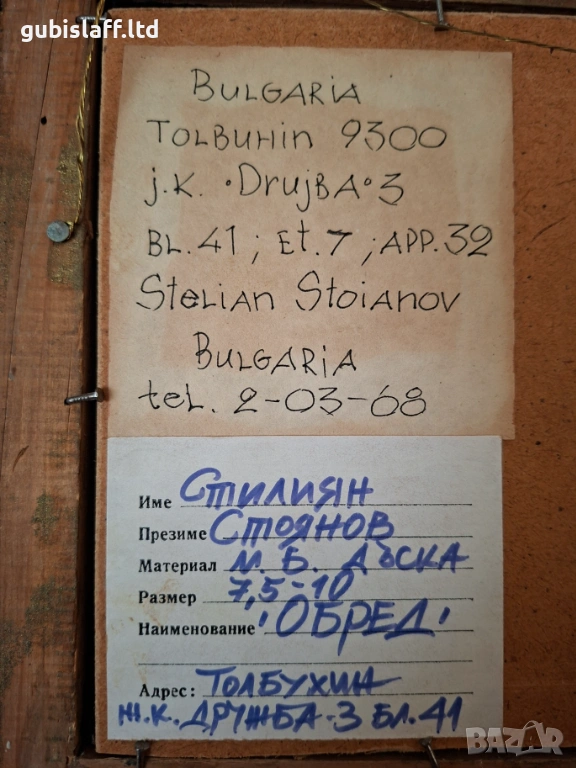 gubislaff.ltd
BULGARIA
TOLBUHIN 9300
j.K. •DrUjBA•3
BL.41; Et.7; APP.32
Stelian Stoianov
BULGARIA
tel. 2-03-68
Име СТИЛИЯН
Презиме СТОЯНОВ
Материал М. Б. ДЪСКА
Размер 7,5-10
Наименование "ОБРЕД"
Адрес: ТОЛБУХИН
Ж.К. ДРУЖБА-3 БЛ.41
BAZAR